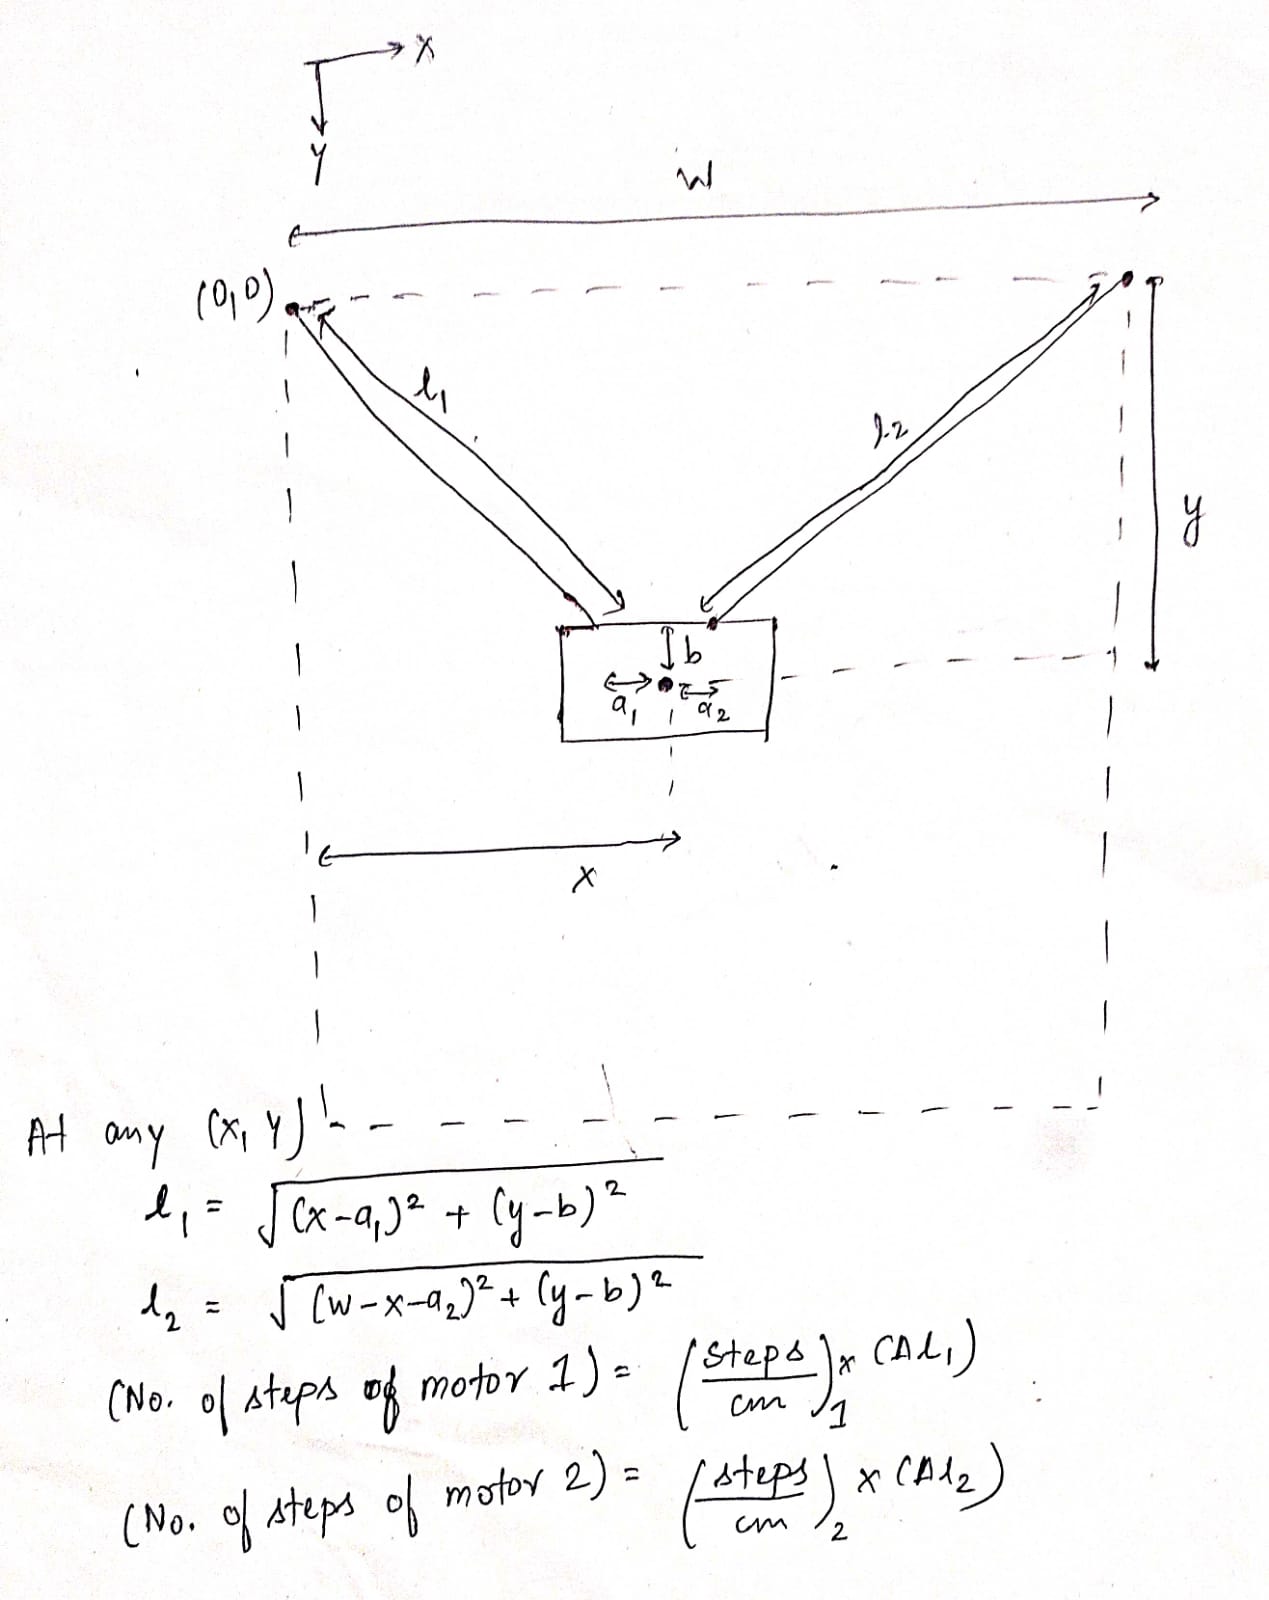 X
Y
W
(0,0)
l₁
l₂
y
b
a₁
a₂
x
At any (x, y)
l₁ = √((x-a₁)² + (y-b)²)
l₂ = √((w-x-a₂)² + (y-b)²)
(No. of steps of motor 1) = (steps/cm)₁ x (Δl₁)
(No. of steps of motor 2) = (steps/cm)₂ x (Δl₂)